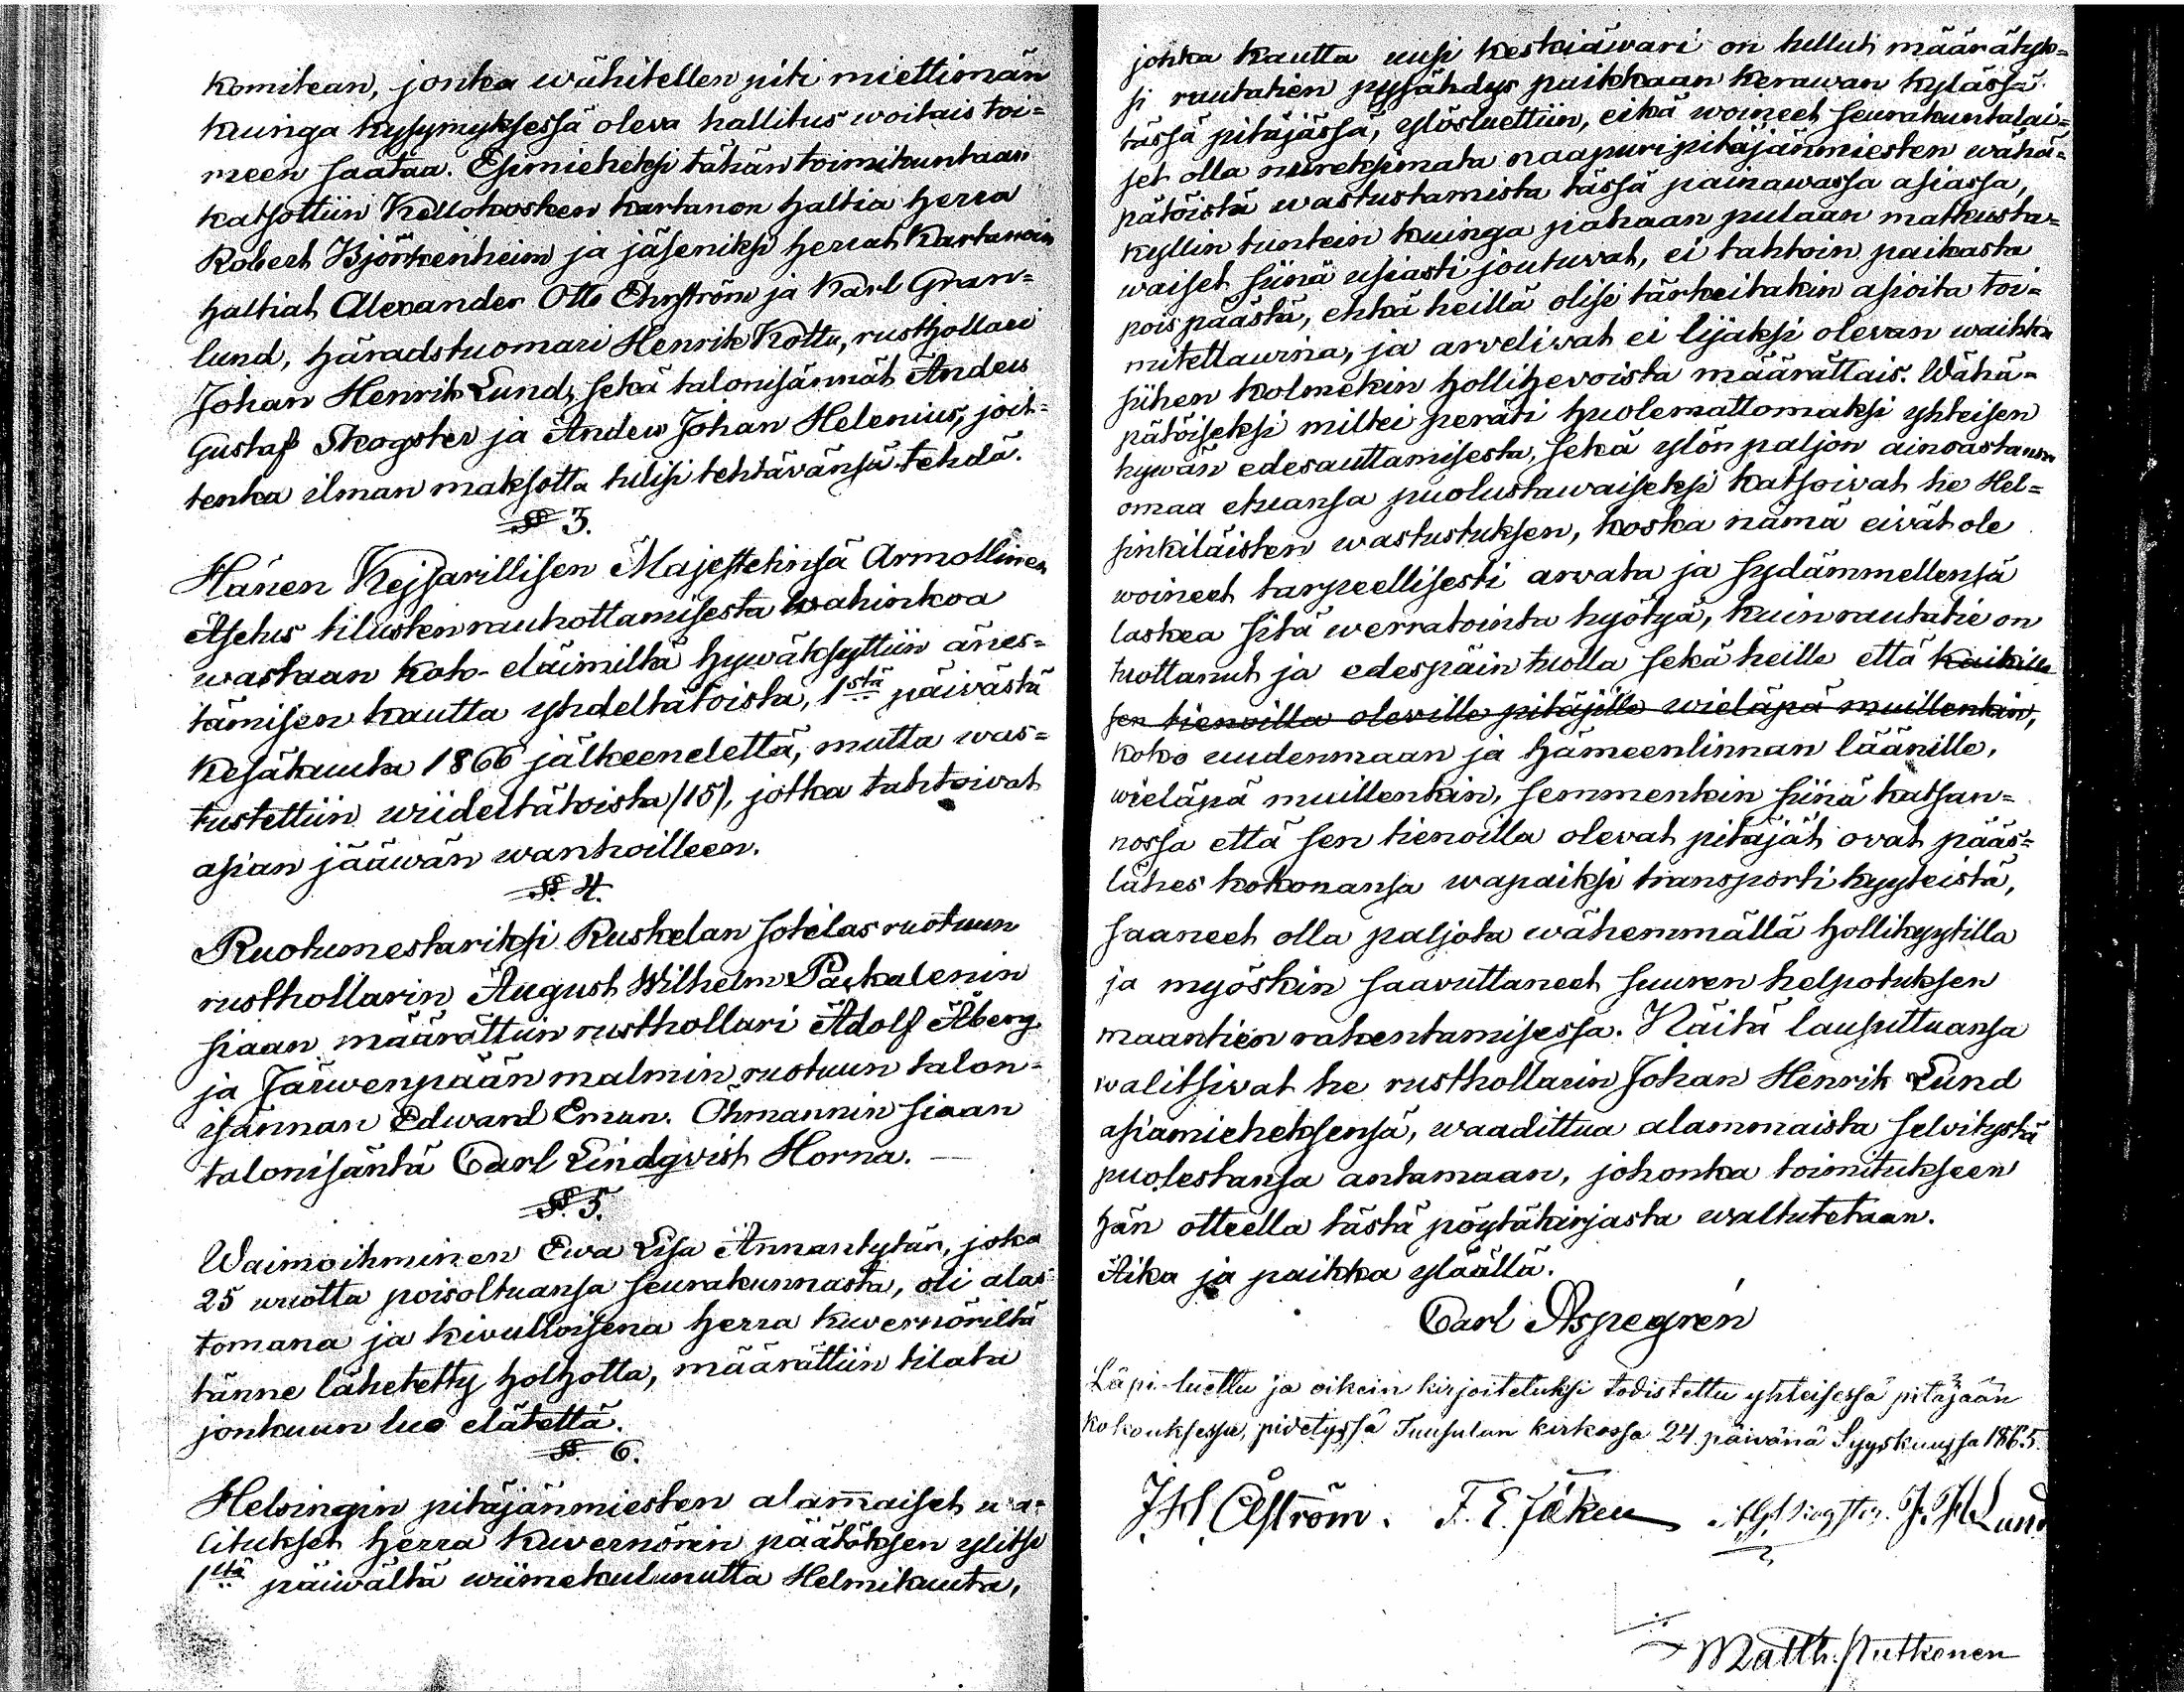 komitean, jonka wähitellen piti miettimän
kuinga kysymyksessä oleva hallitus woitais toi=
meen saataa. Esimieheksi tähän toimikuntaan
katsottiin Kellokosken kartanon haltia herra
Robert Björkenheim ja jäseniksi herrat Kartanoin
haltiat Alexander Otto Ehnström ja Karl Gran=
lund, häradstuomari Henrik Kottu, rusthollari
Johan Henrik Lund, sekä talonisännät Anders
Gustaf Skogster ja Anders Johan Helenius, joit=
tenka ilman maksotta tulisi tehtävänsä tehdä.
§ 3.
Hänen Keisarillisen Majestetinsä Armollinen
Asetus tilusten rauhottamisesta wahinkoa
wastaan koto-eläimiltä hywäksyttiin änes=
tämisen kautta yhdeltätoista, 1stä päivästä
Kesäkuuta 1866 jälkeenelettä, mutta was=
tustettiin wiideltätoista (15), jotka tahtoivat
asian jääwän wanhoilleen.
§. 4.
Ruotumestariksi Ruskelan sotilas ruotuun
rusthollarin August Wilhelm Packalenin
siaan määrättiin rusthollari Adolf Åberg
ja Järwenpään malmin ruotuun talon=
isännän Edward Eman. Öhmannin siaan
talonisäntä Carl Lindqvist Horna. —
§. 5.
Waimoihminen Ewa Lisa Annantytär, joka
25 wuotta poisoltuansa seurakunnasta, oli alas=
tomana ja kivulloisena herra kuvernöriltä
tänne lähetetty holhotta, määrättiin tilata
jonkuun luo elätettä.
§. 6.
Helsingin pitäjänmiesten alamaiset wa=
litukset herra kuvernörin päätöksen ylitse
1ltä päiwältä wiimekulunutta Helmikuuta,
jonka kautta uusi keskiäwari on tullut määrätyk=
si rautatien pysähdys paikkaan kerawan kylässä
tässä pitäjässä, ylösluettiin, eikä woineet seurakuntalai=
set olla nureksimata naapuripitäjänmiesten wähä=
pätöistä wastustamista tässä painawassa asiassa,
kyllin tuntein kuinga pahaan pulaan matkusta=
waiset siinä usiasti joutuvat, ei tahtoin paikasta
pois päästä, ehkä heillä olisi tärkeitakin asioita toi=
mitettawina, ja arvelivat ei lijaksi olevan waikka
siihen kolmekin hollihevoista määrättäis. Wähä=
pätöiseksi miltei peräti huolemattomaksi yhteisen
hywän edesauttamisesta, sekä ylön paljon ainoastansa
omaa etuansa puolustawaiseksi katsoivat he Hel=
sinkiläisten wastustuksen, koska nämä eivät ole
woineet tarpeellisesti arvata ja sydämmellensä
laskea sitä werratointa hyötyä, kuin rautatie on
tuottanut ja edespäin tuolla sekä heille että kaikille
sen tienoilla oleville pitäjille wieläpä muillenkin,
koko uudenmaan ja hämeenlinnan läänille,
wieläpä muillenkin, semmenkin siinä katsan=
nossa että sen tienoilla olevat pitäjät ovat pääs=
lähes kokonansa wapaiksi transporti kyyteistä,
saaneet olla paljota wähemmällä hollikyytilla
ja myöskin saavuttaneet suuren helpotuksen
maantien rakentamisessa. Näitä lausuttuansa
walitsivat he rusthollarin Johan Henrik Lund
asiamieheksensä, waadittua alammaista selvitystä
puolestansa antamaan, johonka toimitukseen
hän otteella tästä pöytäkirjasta waltutetaan.
Aika ja paikka ylääIlä.
Carl Aspegrén
Läpi luettu ja oikein kirjoiteluksi todistettu yhteisessä pitäjään
kokouksessa, pidetyssä Tuusulan kirkossa 24 päivänä Syyskuussa 1865.
J. H. Åström. F. E. Jäken J. H. Lund
Matth. Putkonen